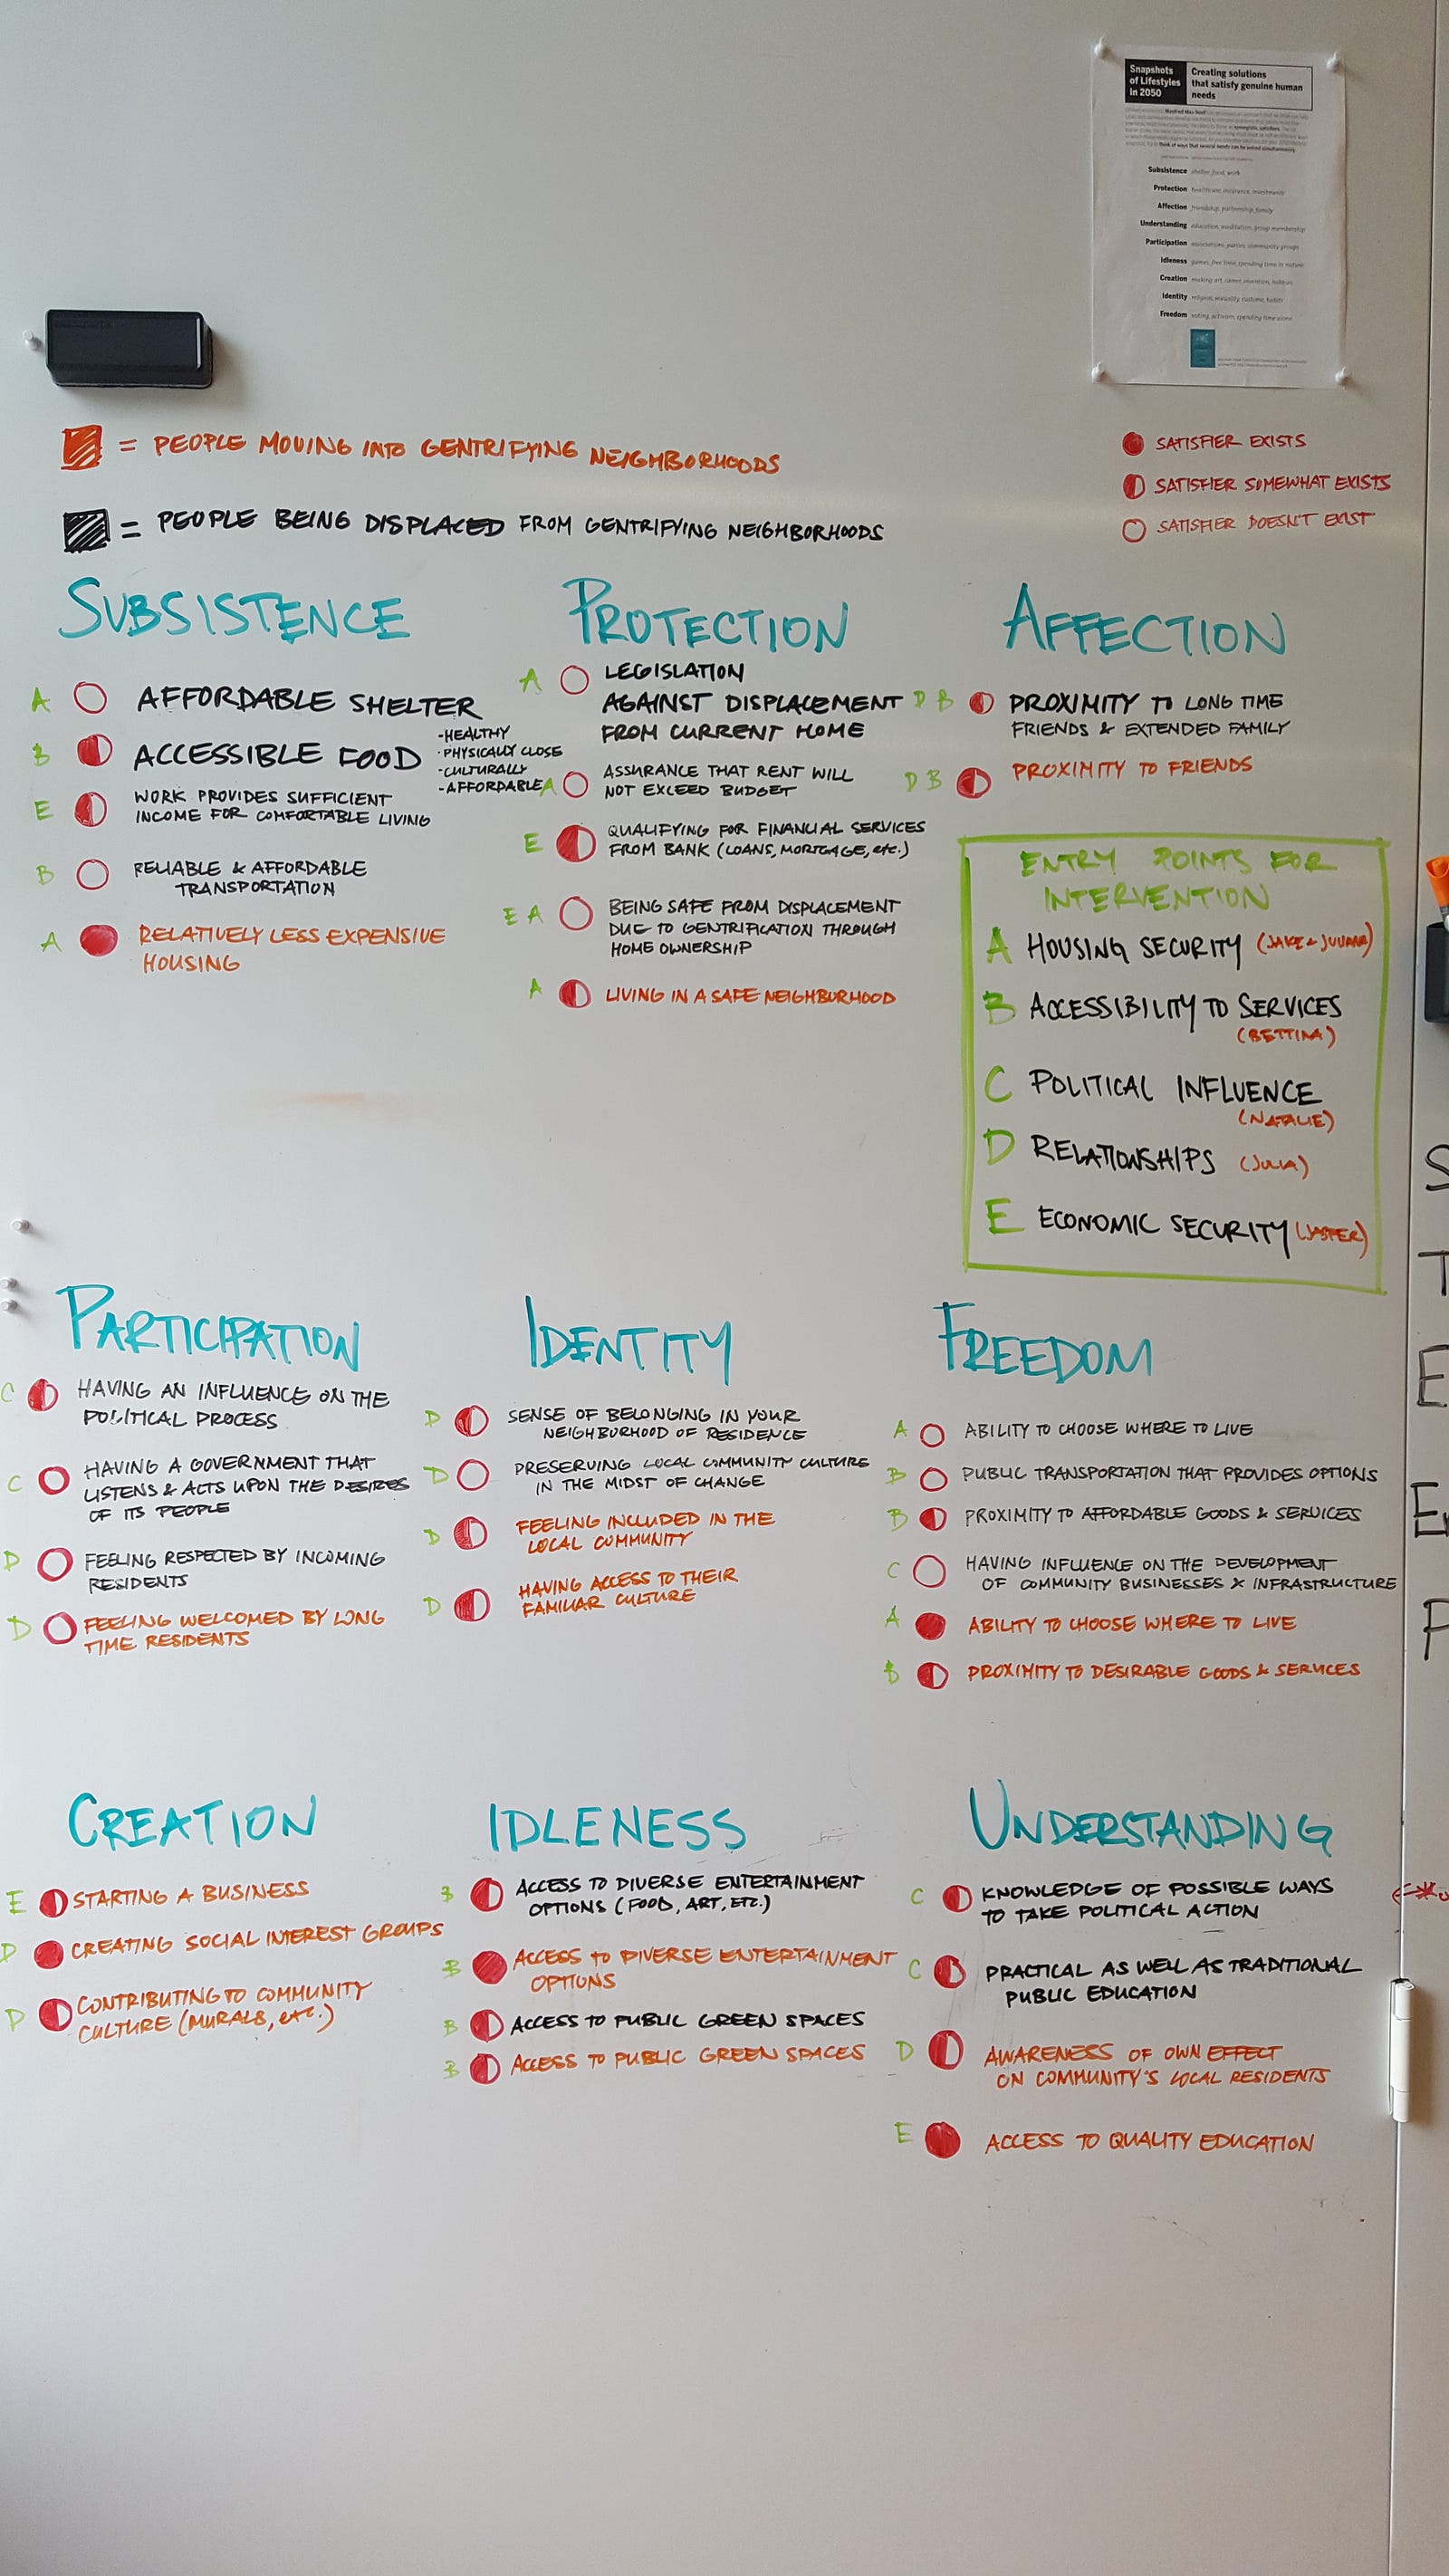 Snapshots of Lifestyles in 2050
Creating solutions that satisfy genuine human needs
Manfred Max Neef
synergistic satisfiers
think of ways that several needs can be solved simultaneously.
Subsistence shelter, food, work
Protection healthcare, insurance, investments
Affection friendship, partnership, family
Understanding education, meditation, group membership
Participation associations, parties, community groups
Idleness games, free time, spending time in nature
Creation making art,
Identity religion, sexuality, customs, habits
Freedom voting, activism, spending time alone
= PEOPLE MOVING INTO GENTRIFYING NEIGHBORHOODS
= PEOPLE BEING DISPLACED FROM GENTRIFYING NEIGHBORHOODS
SATISFIER EXISTS
SATISFIER SOMEWHAT EXISTS
SATISFIER DOESN'T EXIST
SUBSISTENCE
A AFFORDABLE SHELTER
B ACCESSIBLE FOOD
-HEALTHY
-PHYSICALLY CLOSE
-CULTURALLY
-AFFORDABLE
E WORK PROVIDES SUFFICIENT
INCOME FOR COMFORTABLE LIVING
B RELIABLE & AFFORDABLE
TRANSPORTATION
A RELATIVELY LESS EXPENSIVE
HOUSING
PROTECTION
A LEGISLATION
AGAINST DISPLACEMENT
FROM CURRENT HOME
A ASSURANCE THAT RENT WILL
NOT EXCEED BUDGET
E QUALIFYING FOR FINANCIAL SERVICES
FROM BANK (LOANS, MORTGAGE, etc.)
E A BEING SAFE FROM DISPLACEMENT
DUE TO GENTRIFICATION THROUGH
HOME OWNERSHIP
A LIVING IN A SAFE NEIGHBURHOOD
AFFECTION
D B PROXIMITY TO LONG TIME
FRIENDS & EXTENDED FAMILY
D B PROXIMITY TO FRIENDS
ENTRY POINTS FOR
INTERVENTION
A HOUSING SECURITY (JAKE & JULIANA)
B ACCESSIBILITY TO SERVICES
(BETTINA)
C POLITICAL INFLUENCE
(NATALIE)
D RELATIONSHIPS (JULIA)
E ECONOMIC SECURITY (JASPER)
PARTICIPATION
C HAVING AN INFLUENCE ON THE
POLITICAL PROCESS
C HAVING A GOVERNMENT THAT
LISTENS & ACTS UPON THE DESIRES
OF ITS PEOPLE
D FEELING RESPECTED BY INCOMING
RESIDENTS
D FEELING WELCOMED BY LONG
TIME RESIDENTS
IDENTITY
D SENSE OF BELONGING IN YOUR
NEIGHBURHOOD OF RESIDENCE
D PRESERVING LOCAL COMMUNITY CULTURE
IN THE MIDST OF CHANGE
D FEELING INCLUDED IN THE
LOCAL COMMUNITY
D HAVING ACCESS TO THEIR
FAMILIAR CULTURE
FREEDOM
A ABILITY TO CHOOSE WHERE TO LIVE
B PUBLIC TRANSPORTATION THAT PROVIDES OPTIONS
B PROXIMITY TO AFFORDABLE GOODS & SERVICES
C HAVING INFLUENCE ON THE DEVELOPMENT
OF COMMUNITY BUSINESSES & INFRASTRUCTURE
A ABILITY TO CHOOSE WHERE TO LIVE
B PROXIMITY TO DESIRABLE GOODS & SERVICES
CREATION
E STARTING A BUSINESS
D CREATING SOCIAL INTEREST GROUPS
D CONTRIBUTING TO COMMUNITY
CULTURE (MURALS, etc.)
IDLENESS
B ACCESS TO DIVERSE ENTERTAINMENT
OPTIONS (FOOD, ART, ETC.)
B ACCESS TO DIVERSE ENTERTAINMENT
OPTIONS
B ACCESS TO PUBLIC GREEN SPACES
B ACCESS TO PUBLIC GREEN SPACES
UNDERSTANDING
C KNOWLEDGE OF POSSIBLE WAYS
TO TAKE POLITICAL ACTION
C PRACTICAL AS WELL AS TRADITIONAL
PUBLIC EDUCATION
D AWARENESS OF OWN EFFECT
ON COMMUNITY'S LOCAL RESIDENTS
E ACCESS TO QUALITY EDUCATION
S
T
E
E
P